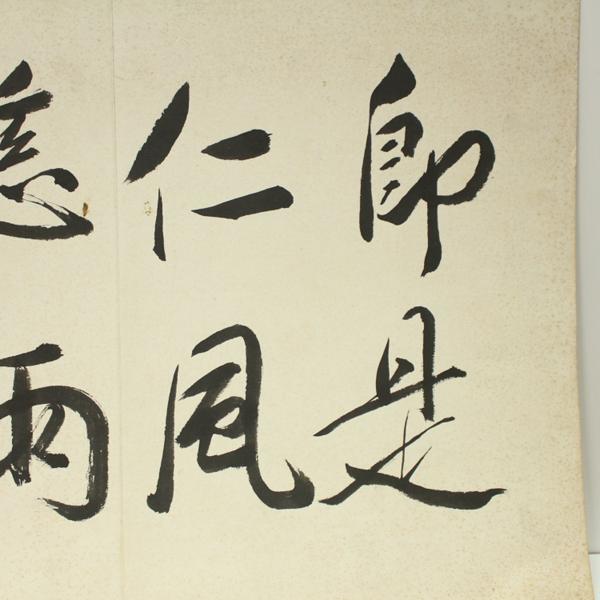 即是
仁風
慈雨